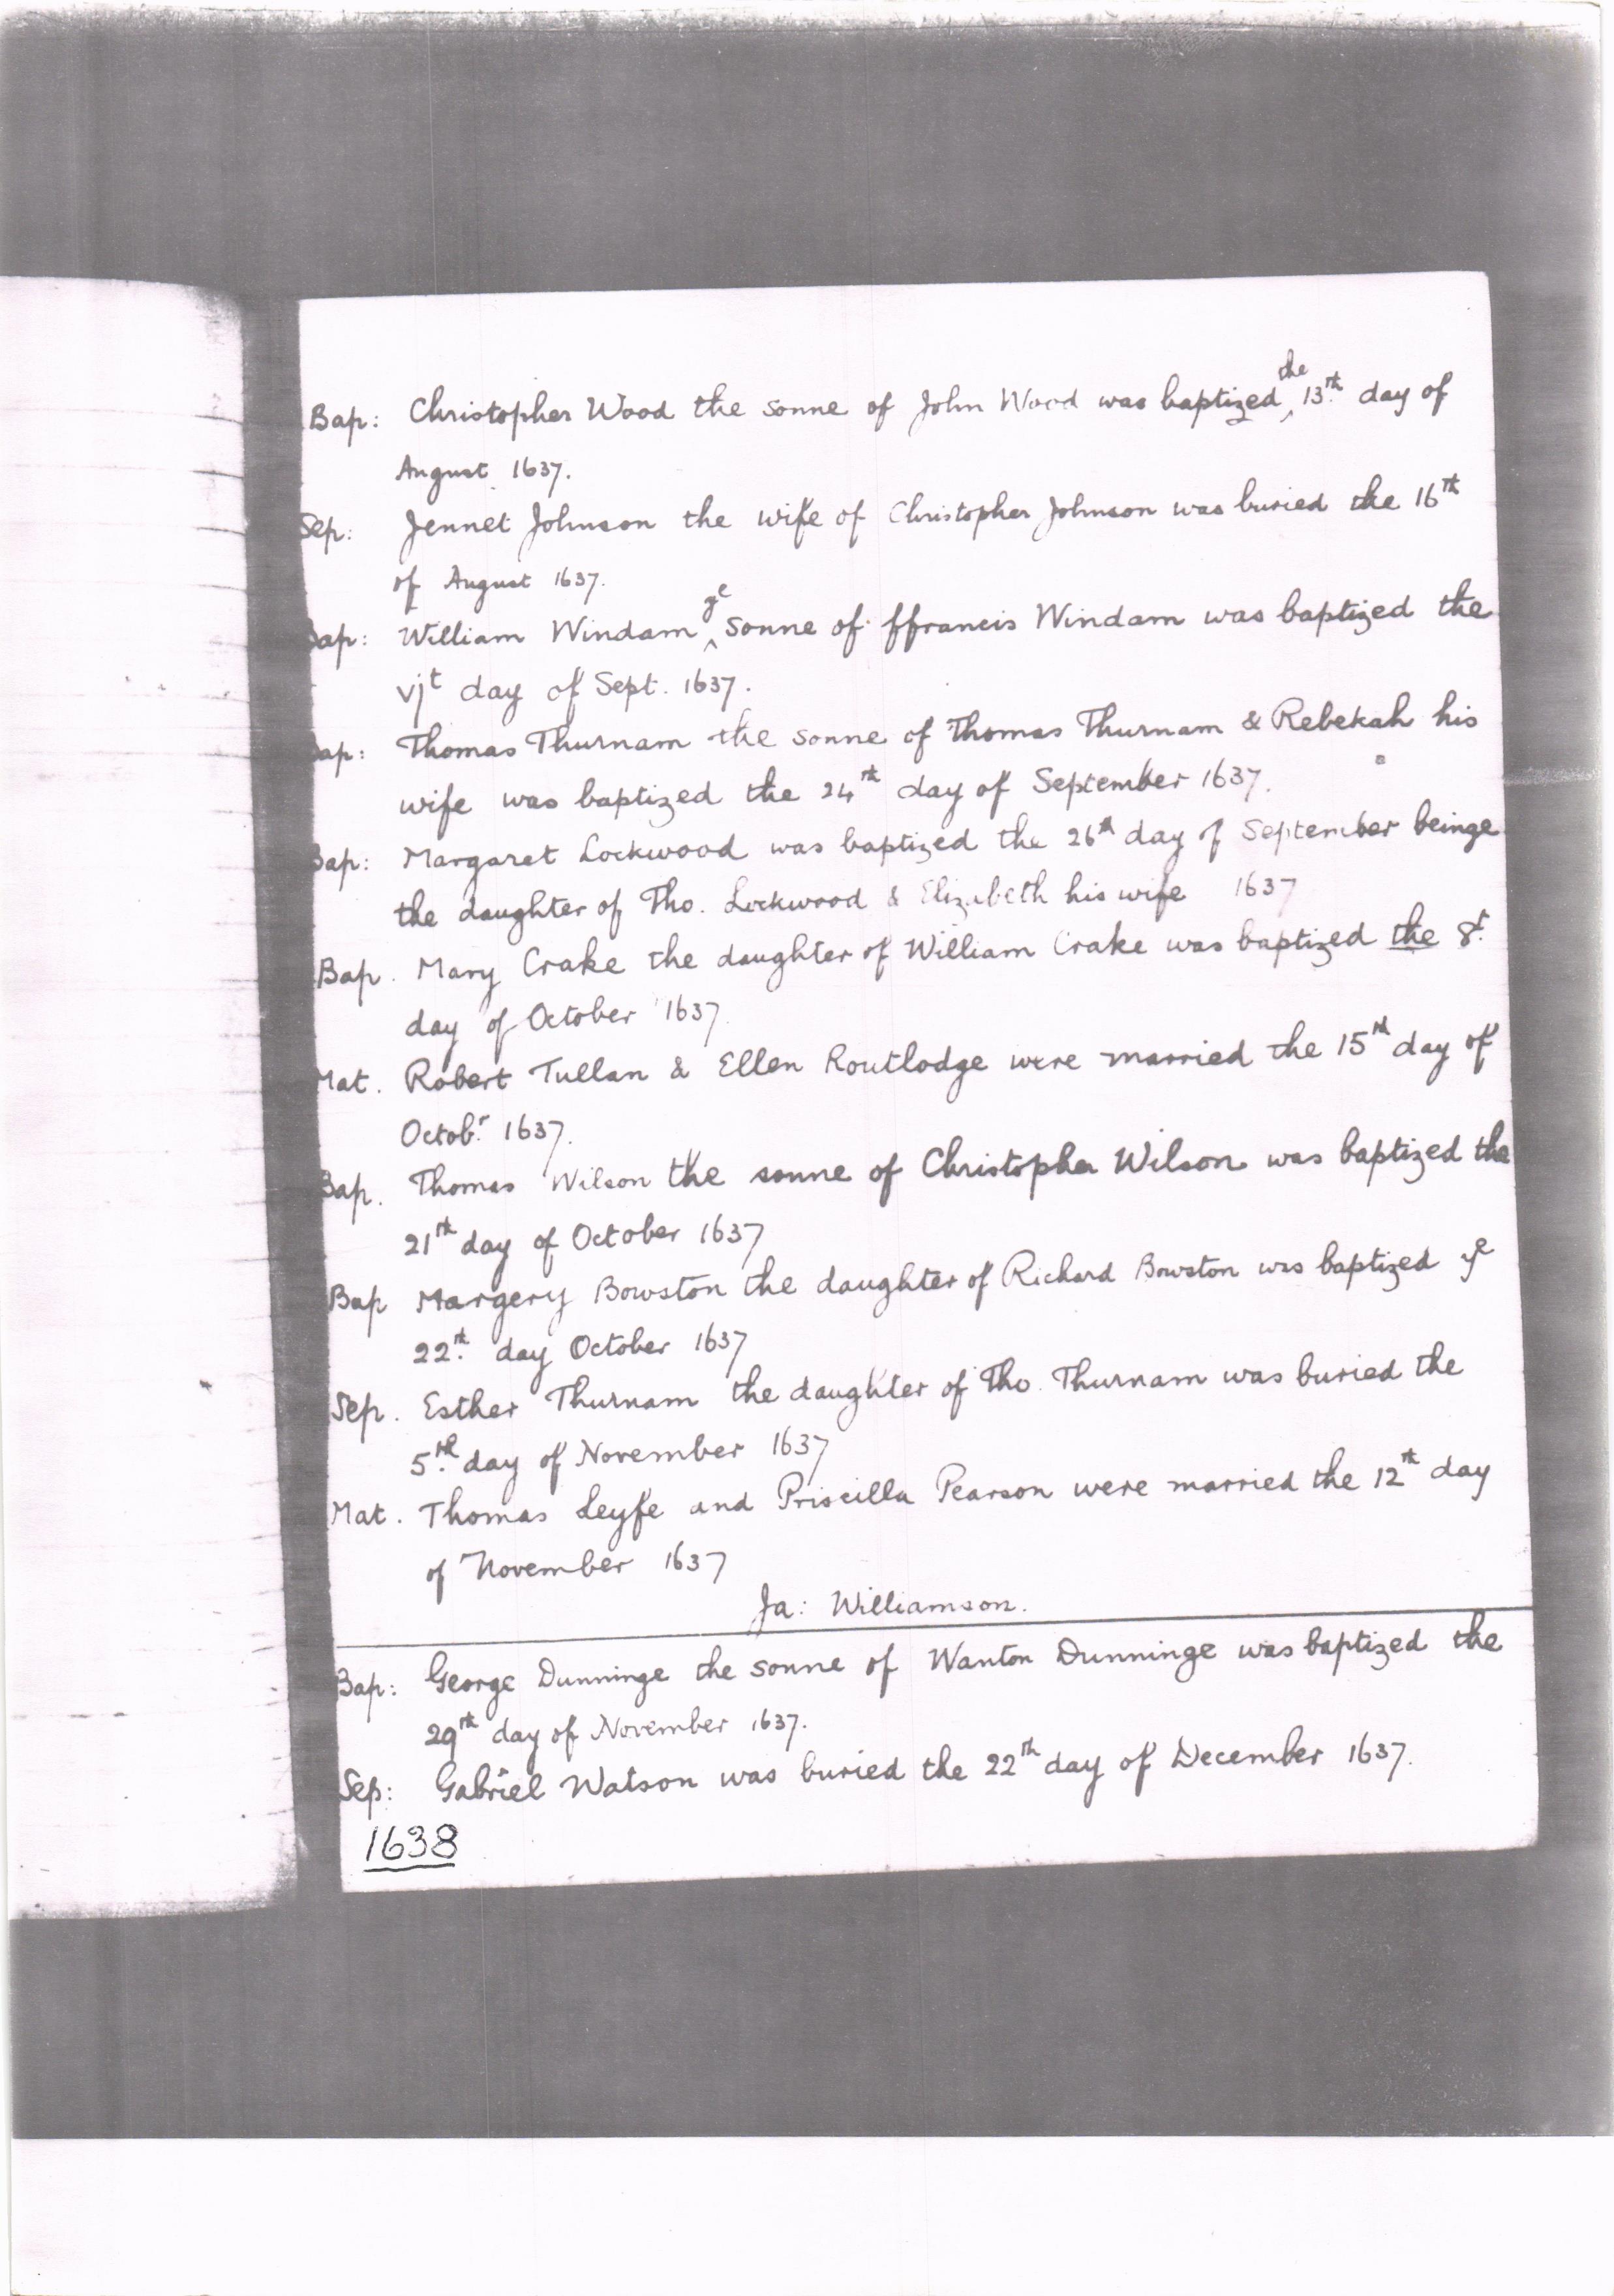 Bap: Christopher Wood the sonne of John Wood was baptized the 13th day of
August 1637.
Sep: Jennet Johnson the wife of Christopher Johnson was buried the 16th
of August 1637.
Bap: William Windam ye sonne of ffrancis Windam was baptized the
vjt day of Sept. 1637.
Bap: Thomas Thurnam the sonne of Thomas Thurnam & Rebekah his
wife was baptized the 24th day of September 1637.
Bap: Margaret Lockwood was baptized the 26th day of September beinge
the daughter of Tho. Lockwood & Elizabeth his wife 1637
Bap. Mary Crake the daughter of William Crake was baptized the 8t
day of October 1637.
Mat. Robert Tullan & Ellen Routlodge were married the 15th day of
Octobr 1637.
Bap. Thomas Wilson the sonne of Christopher Wilson was baptized the
21th day of October 1637
Bap Margery Bowston the daughter of Richard Bowston was baptized ye
22th day October 1637
Sep. Esther Thurnam the daughter of Tho. Thurnam was buried the
5th day of November 1637
Mat. Thomas Leyfe and Priscilla Pearson were married the 12th day
of November 1637
Ja: Williamson.
Bap: George Dunninge the sonne of Wanton Dunninge was baptized the
29th day of November 1637.
Sep: Gabriel Watson was buried the 22th day of December 1637.
1638